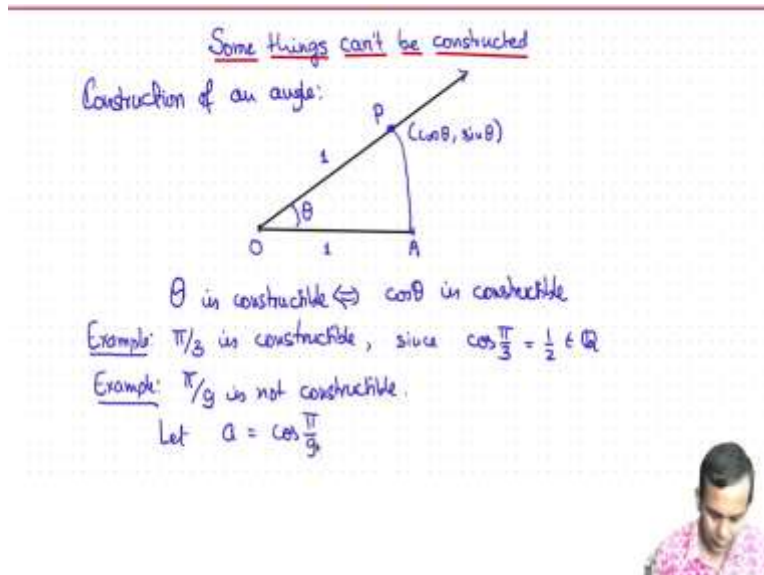 Some things can't be constructed
Construction of an angle:
P
(cosθ, sinθ)
1
θ
O
1
A
θ is constructible ⇔ cosθ is constructible
Example: π/3 is constructible, since cos π/3 = 1/2 ∈ ℚ
Example: π/9 is not constructible.
Let a = cos π/9